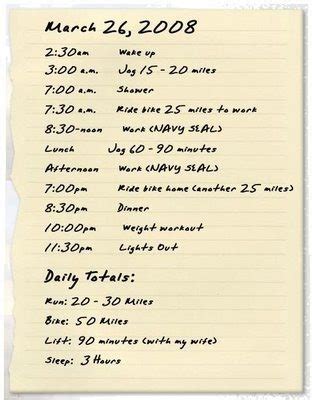 March 26, 2008
2:30am Wake up
3:00 a.m. Jog 15 - 20 miles
7:00 a.m. Shower
7:30 a.m. Ride bike 25 miles to work
8:30-noon Work (NAVY SEAL)
Lunch Jog 60 - 90 minutes
Afternoon Work (NAVY SEAL)
7:00pm Ride bike home (another 25 miles)
8:30pm Dinner
10:00pm Weight workout
11:30pm Lights Out
Daily Totals:
Run: 20 - 30 Miles
Bike: 50 Miles
Lift: 90 minutes (with my wife)
Sleep: 3 Hours